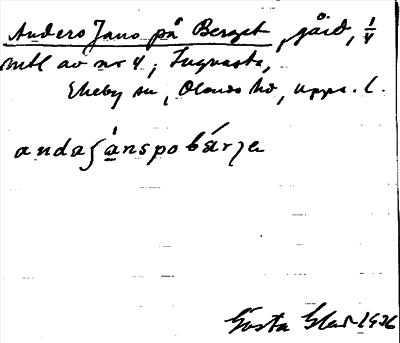 Anders Jans på Berget, gård, 1/4
mtl av nr 4, Tuguasta,
Ekeby sn, Olands hd, Upps. l.
andaʃánspobárja
Gösta 1936